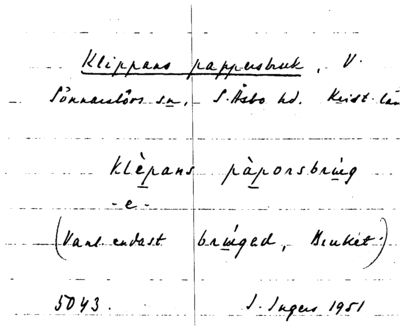 Klippans pappersbruk, V.
Sönnarslövs sn, S. Åsbo hd. Krist. län
Klèpans pàporsbrúg
-e-
(Vanl. endast brúged, Bruket)
5043. I. Ingers 1951